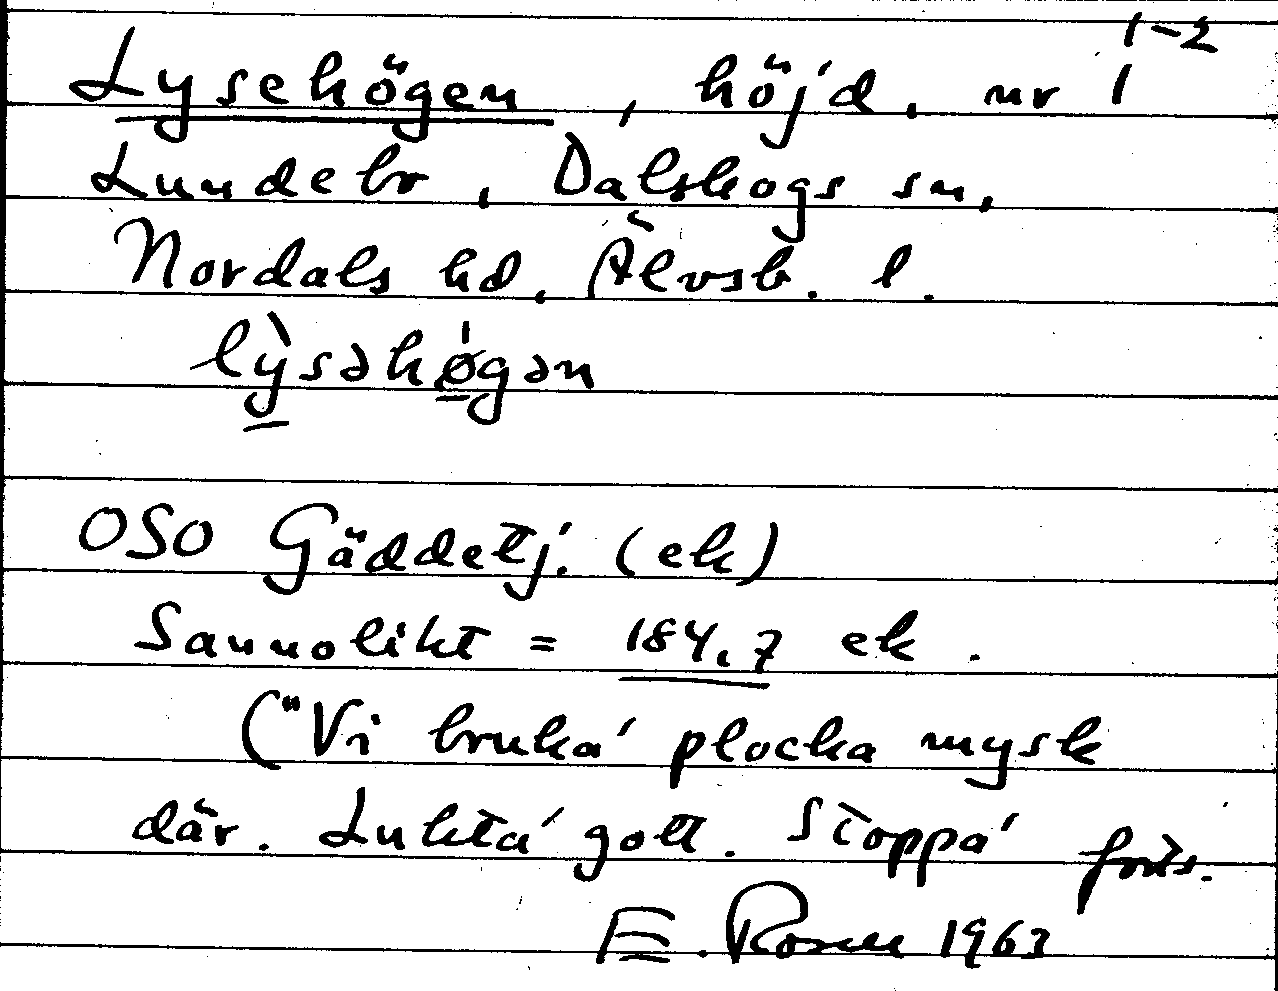 1-2
Lysehögen, höjd, nr 1
Lundebr, Dalskogs sn,
Nordals hd. Älvsb. l.
lỳsəhø̍gən
OSO Gäddetj. (ek)
Sannolikt = 184,7 ek.
("Vi bruka' plocka mysk
där. Lukta' gott. Stoppa' forts.
E. Rosell 1963